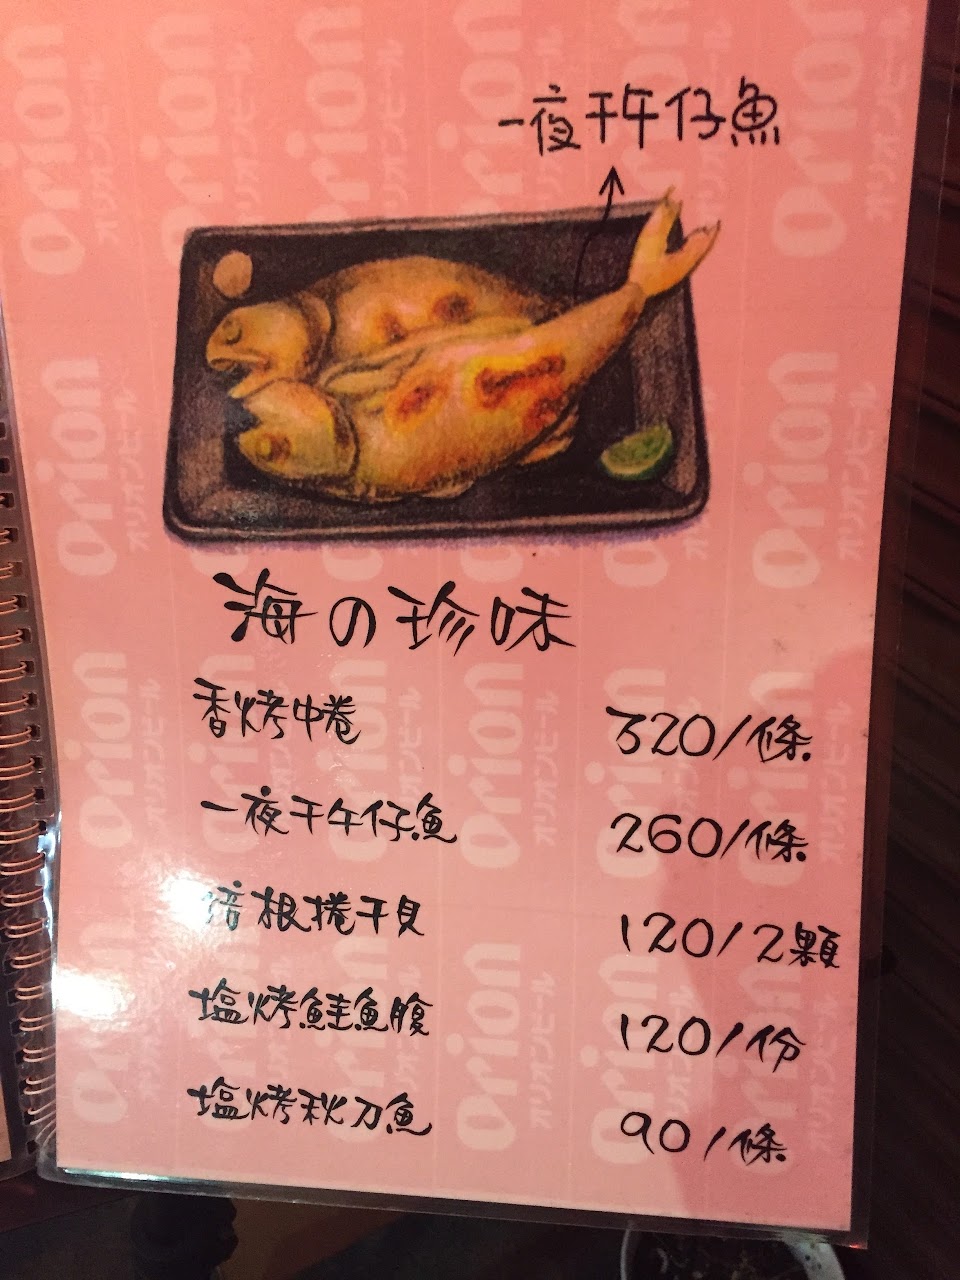 一夜干午仔魚
海の珍味
香烤中卷 320/條
一夜干午仔魚 260/條
培根捲干貝 120/2顆
塩烤鮭魚腹 120/份
塩烤秋刀魚 90/條
Orion
オリオンビール